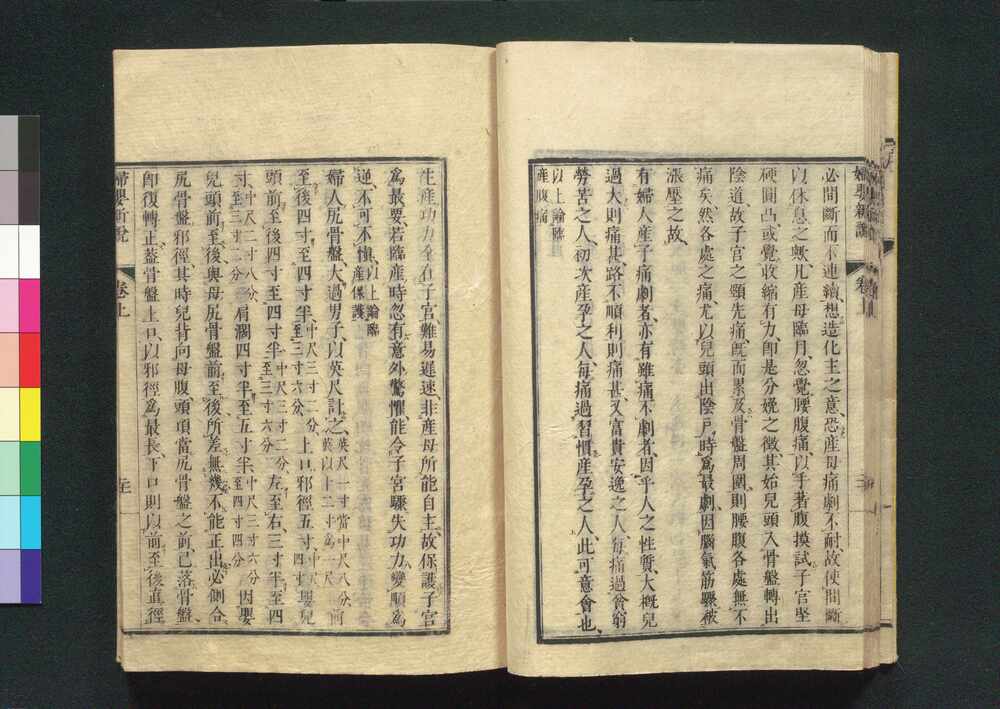 婦嬰新說
卷上
必間斷而不連續、想造化主之意、恐産母痛劇不耐、故使間斷
以休息之歟、凡産母臨月、忽覺腰腹痛、以手若腹摸試子宮堅
硬圓凸、或覺收縮有力、即是分娩之徵、其始兒頭入骨盤轉出
陰道、故子宮之頸先痛、既而累及骨盤周圍、則腰腹各處無不
痛矣、然各處之痛、尤以兒頭出陰戸時爲最劇、因腦氣筋驟被
漲壓之故、
有婦人産子痛劇者、亦有雖痛不劇者、因乎人之性質、大概兒
過大則痛甚、路不順利則痛甚、又富貴安逸之人、每痛過貧窮
勞苦之人、初次産孕之人、每痛過習慣産孕之人、此可意會也、
以上論臨
産腹痛
生産功力全在子宮、難易遲速、非産母所能自主、故保護子宮
爲最要、若臨産時忽有意外驚懼、能令子宮驟失功力、變順爲
逆、不可不慎、以上論臨
産保護
婦人尻骨盤、大過男子、以英尺計之、英尺一寸當中尺八分、
英以十二寸爲一尺 前
至後四寸至四寸半、中尺三寸二分、
至三寸六分、 上口邪徑五寸、中尺
四寸 嬰兒
頭前至後四寸至四寸半、中尺三寸二分、
至三寸六分、 左至右三寸半至四
寸、中尺二寸八分、
至三寸二分、 肩濶四寸半至五寸、中尺三寸六分
至四寸 因嬰
兒頭前至後、與母尻骨盤前至後、所差無幾、不能正出、必側合
尻骨盤邪徑、其時兒背向母腹、頭項當尻骨盤之前、已落骨盤、
即復轉正、蓋骨盤上口、以邪徑爲最長、下口則以前至後直徑
婦嬰新說
卷上